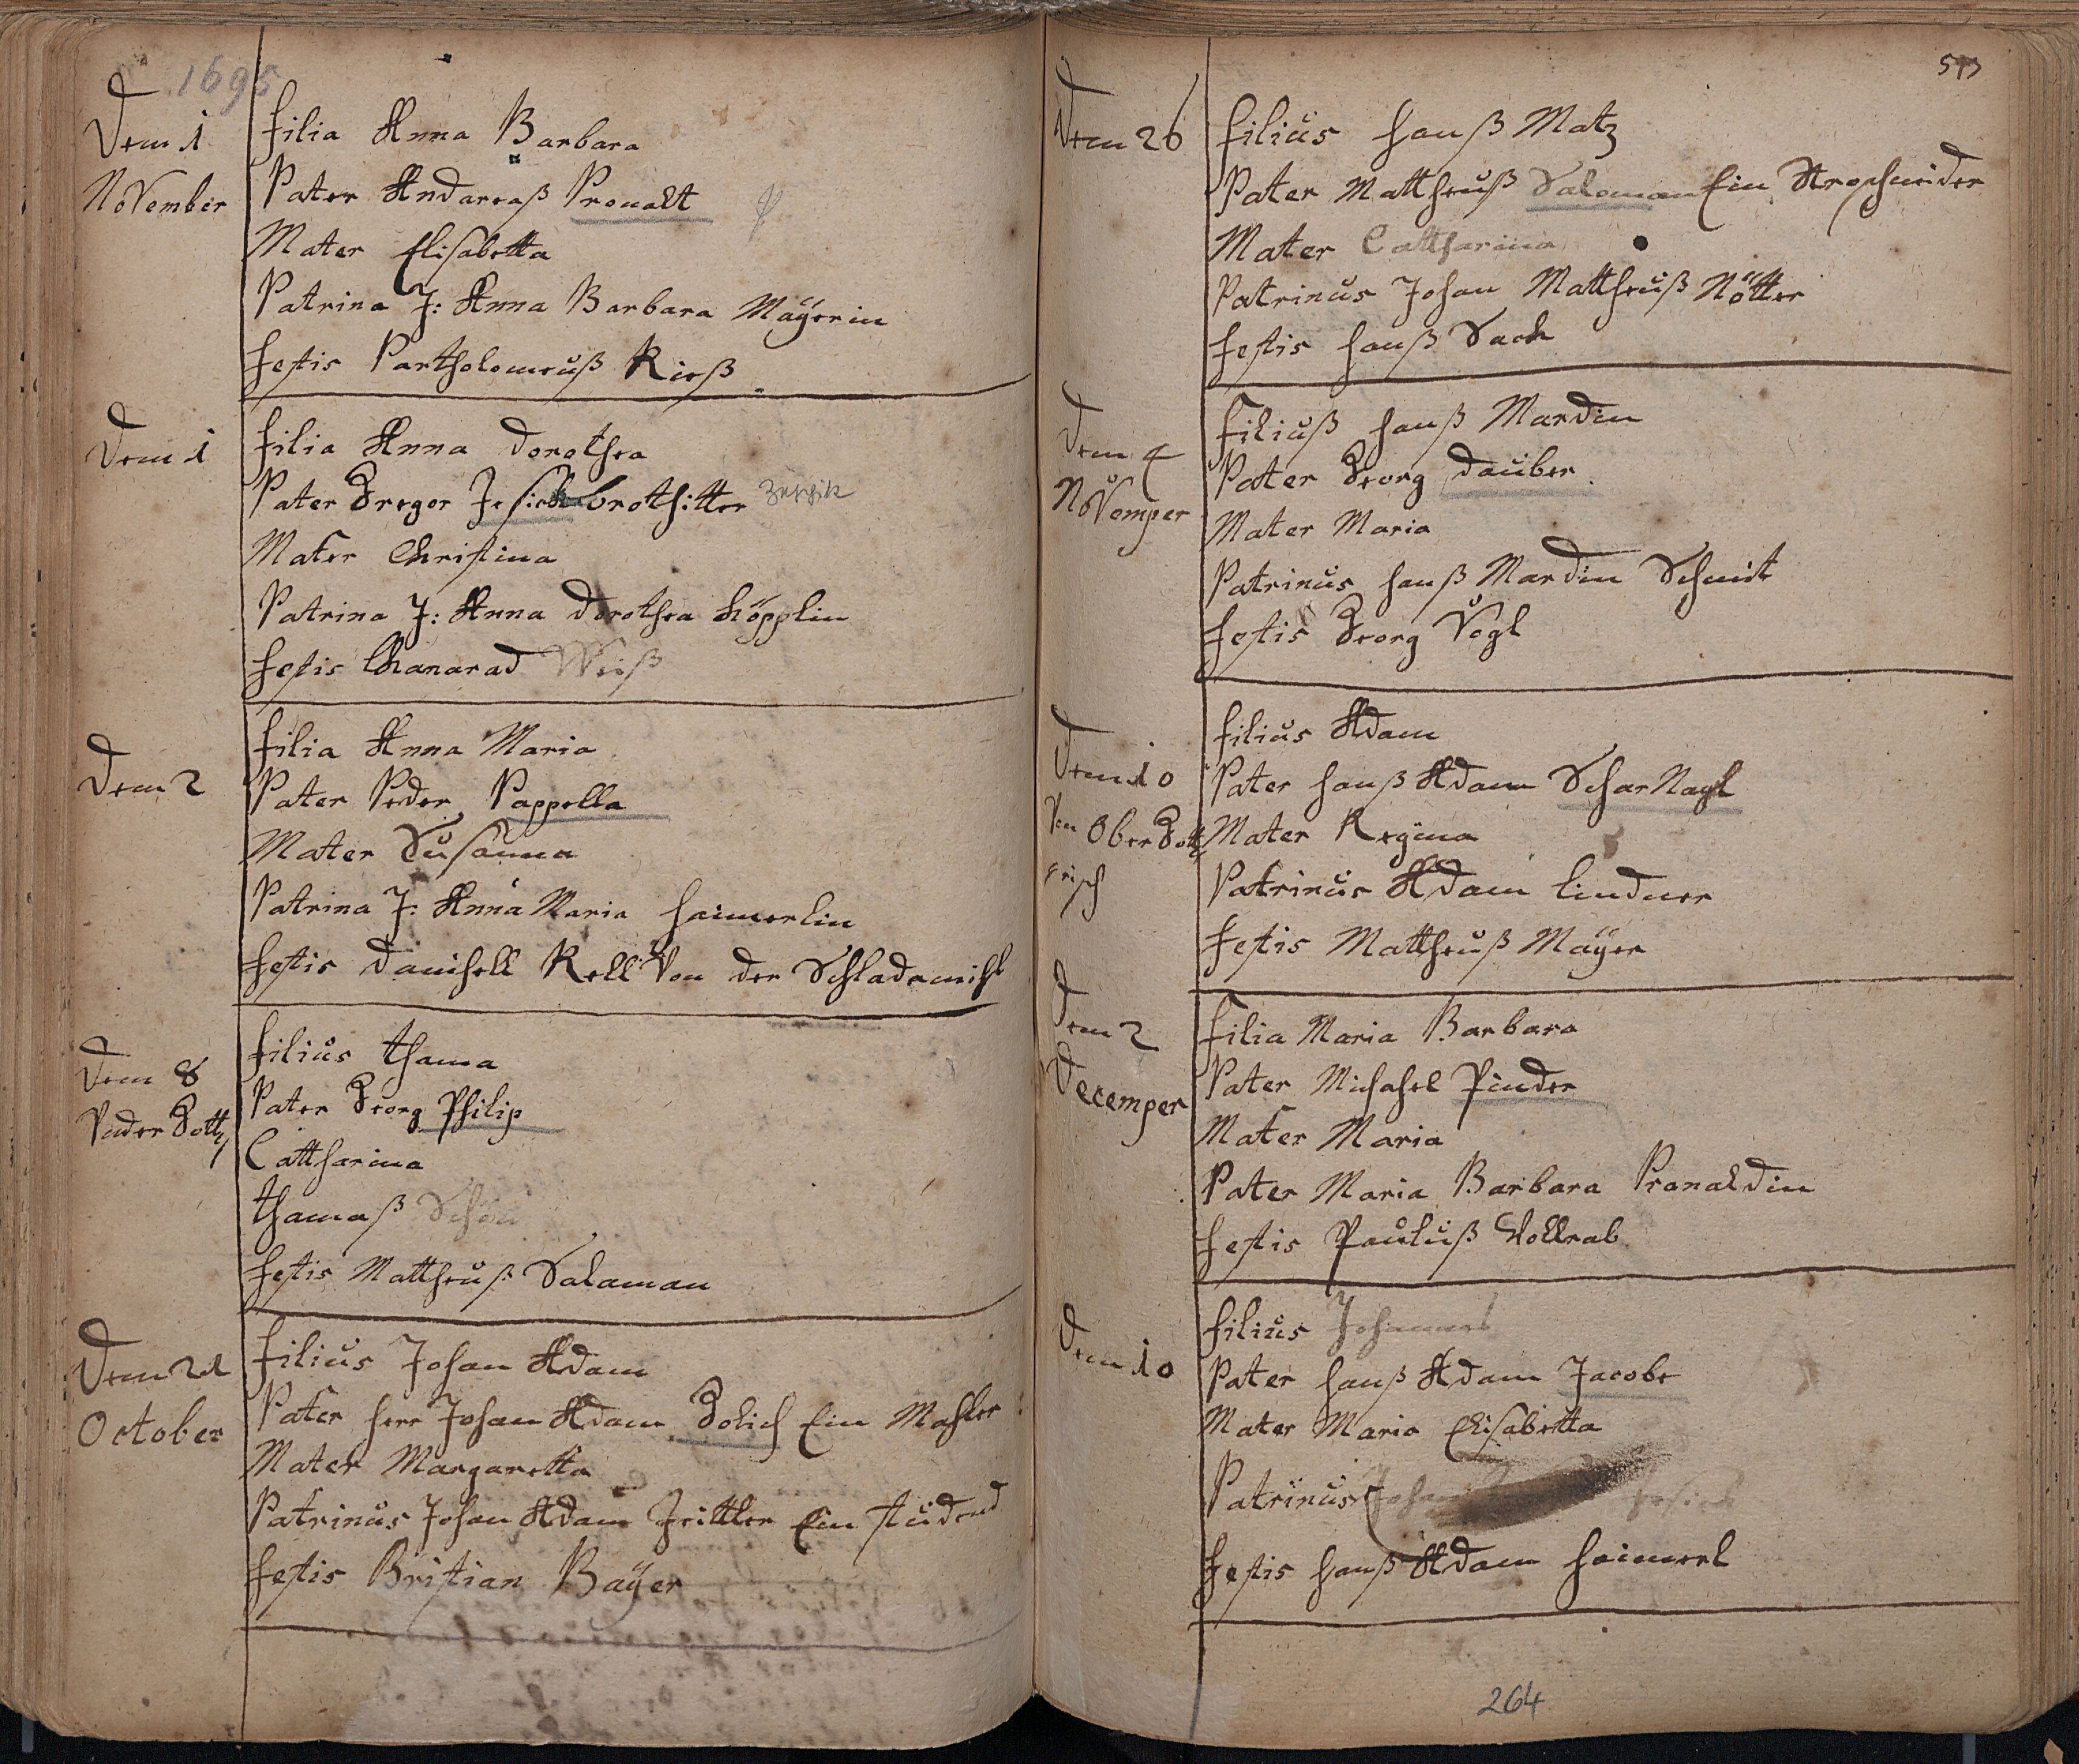 1695
Dem 1 November
filia Anna Barbara
Pater Andareaß Pronalt
Mater Elisabetta
Patrina J: Anna Barbara Maÿerin
testis Partholomeuß Rieß
Dem 1
filia Anna Dorothea
Pater Gregor Jesick brothitter
Mater Christina
Patrina J: Anna Dorothea Köpplin
testis Chanarad Weiß
Dem 2
filia Anna Maria
Pater Peder Pappella
Mater Susanna
Patrina J: Anna Maria haimerlin
testis Danihell Kell Von der Schladamihl
Dem 8
Under Gottz
filius thama
Pater Georg Philip
Cattharina
thamaß Schön
testis Mattheuß Salaman
Dem 21
October
filius Johan Adam
Pater herr Johan Adam Golich Ein Mahler
Mater Margaretta
Patrinus Johan Adam Zeittler Ein studend
testis Bristian Baÿer
Dem 26
filius hanß Matz
Pater Mattheuß Saloman Ein Stroschneider
Mater Cattharina
Patrinus Johan Mattheuß Nötter
testis hanß Sack
Dem 4
Novemper
Filiuß hanß Mardin
Pater Georg Dauber
Mater Maria
Patrinus hanß Mardin Schmit
testis Georg Vogl
Dem 10
Von Ober Gott
risch
filius Adam
Pater hanß Adam Schar Nagl
Mater Regina
Patrinus Adam Lindner
testis Mattheuß Maÿer
Dem 2
Decemper
Filia Maria Barbara
Pater Michahel Pinder
Mater Maria
Pater Maria Barbara Pranaldin
testis Pauluß Vollrab
Dem 10
filius Johannes
Pater hanß Adam Jacobe
Mater Maria Elisabetta
Patrinus Johan
testis hanß Adam haimerl
264